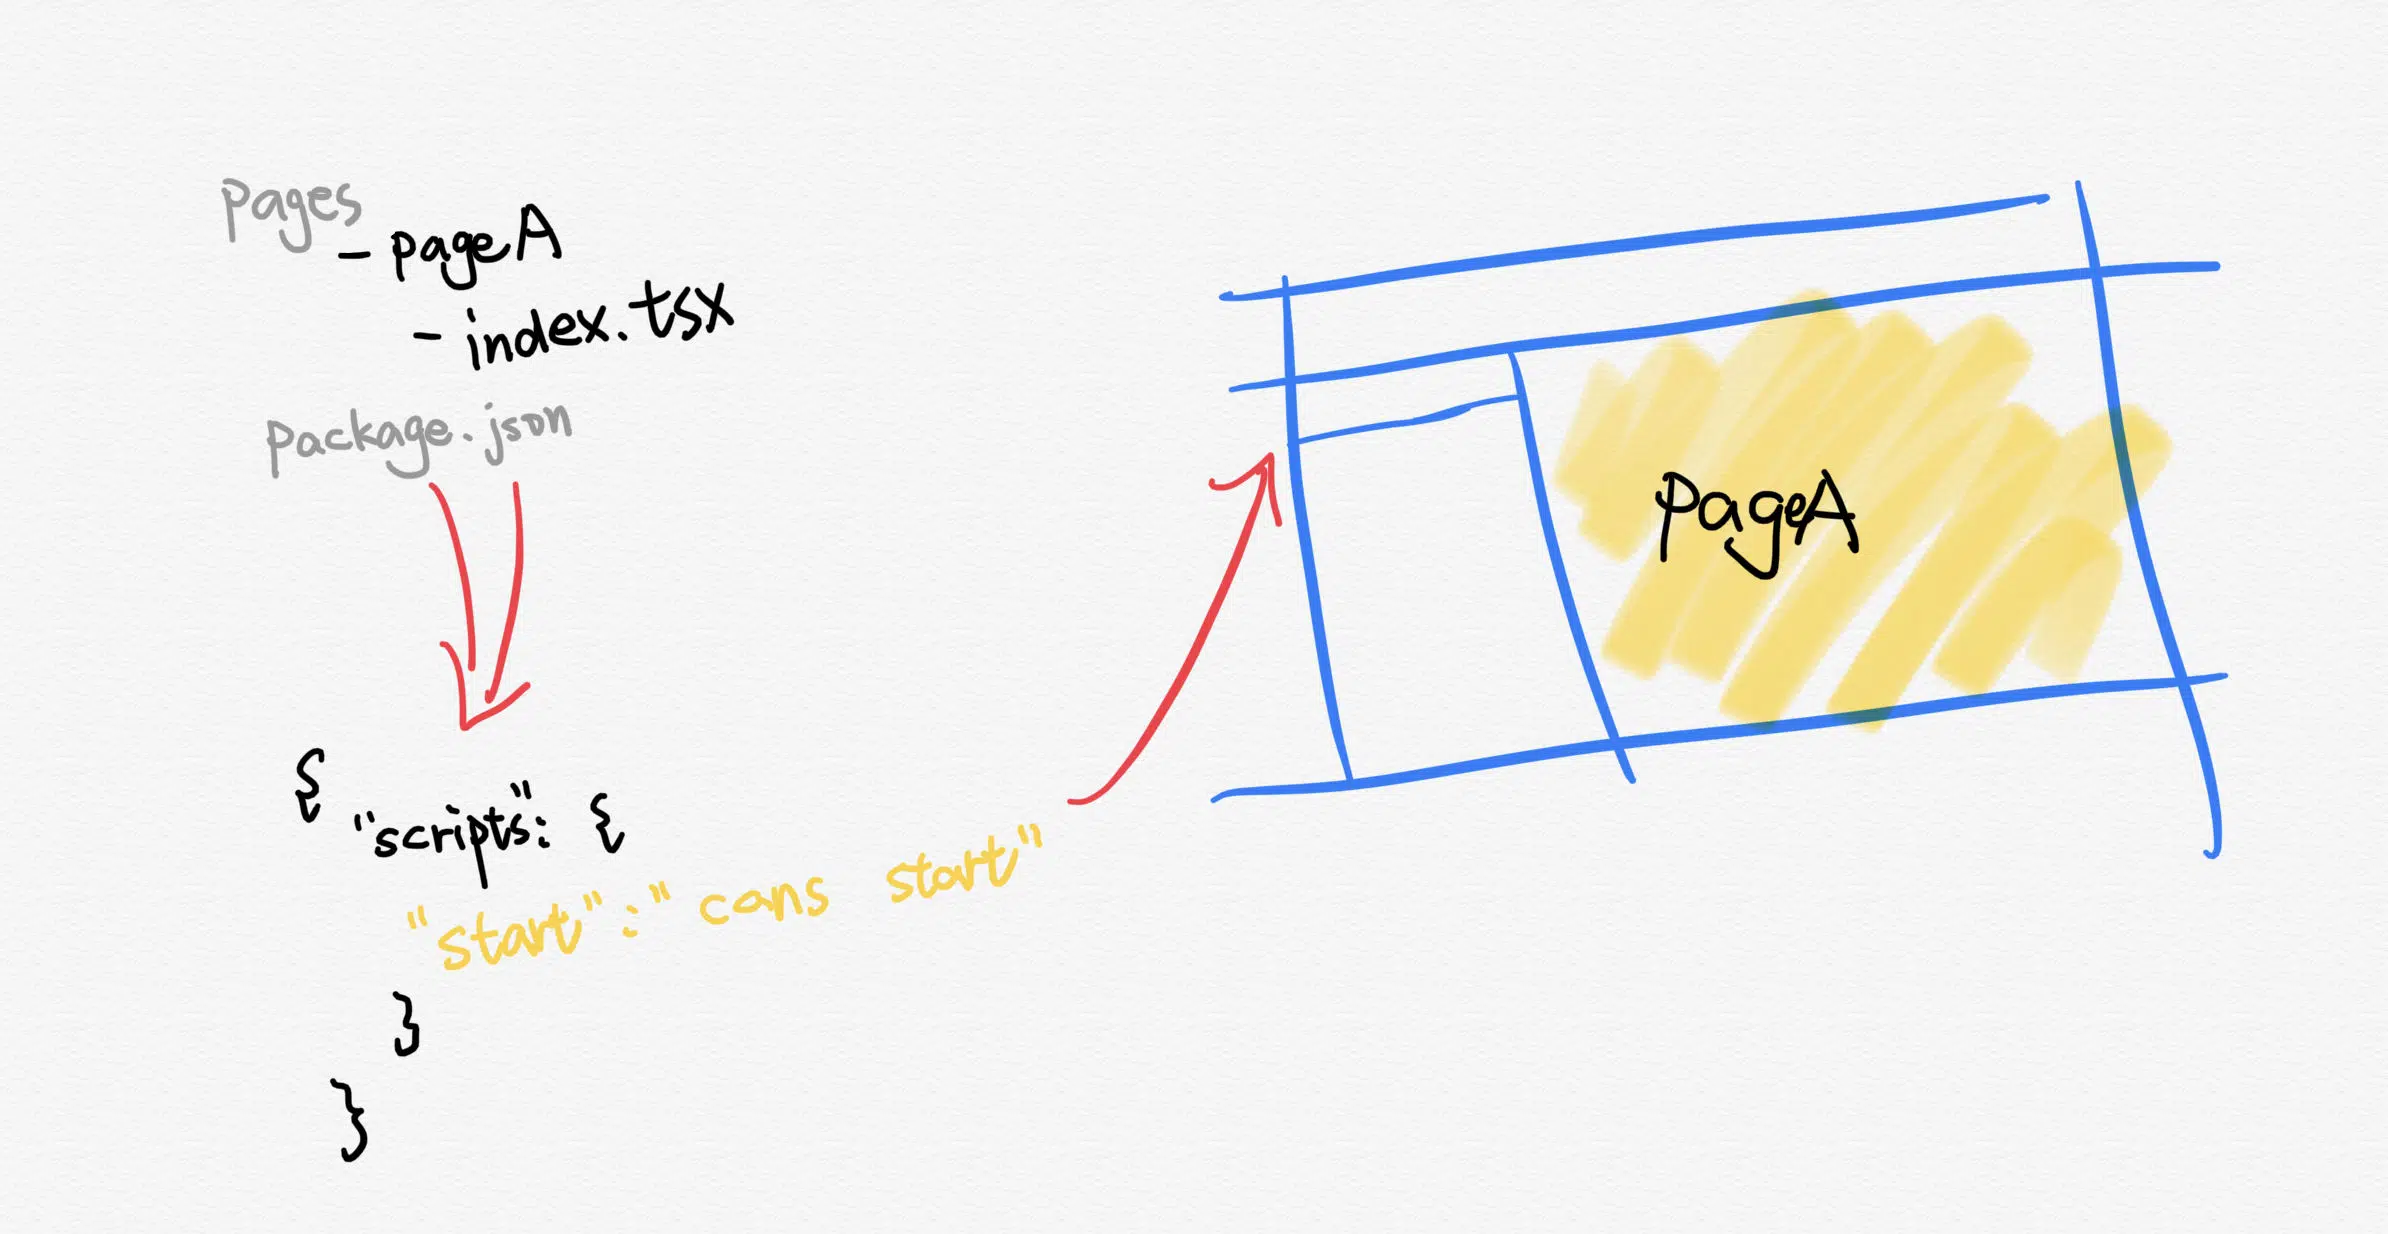 pages
- pageA
- index.tsx
package.json
{
"scripts": {
"start":"cans start"
}
}
pageA